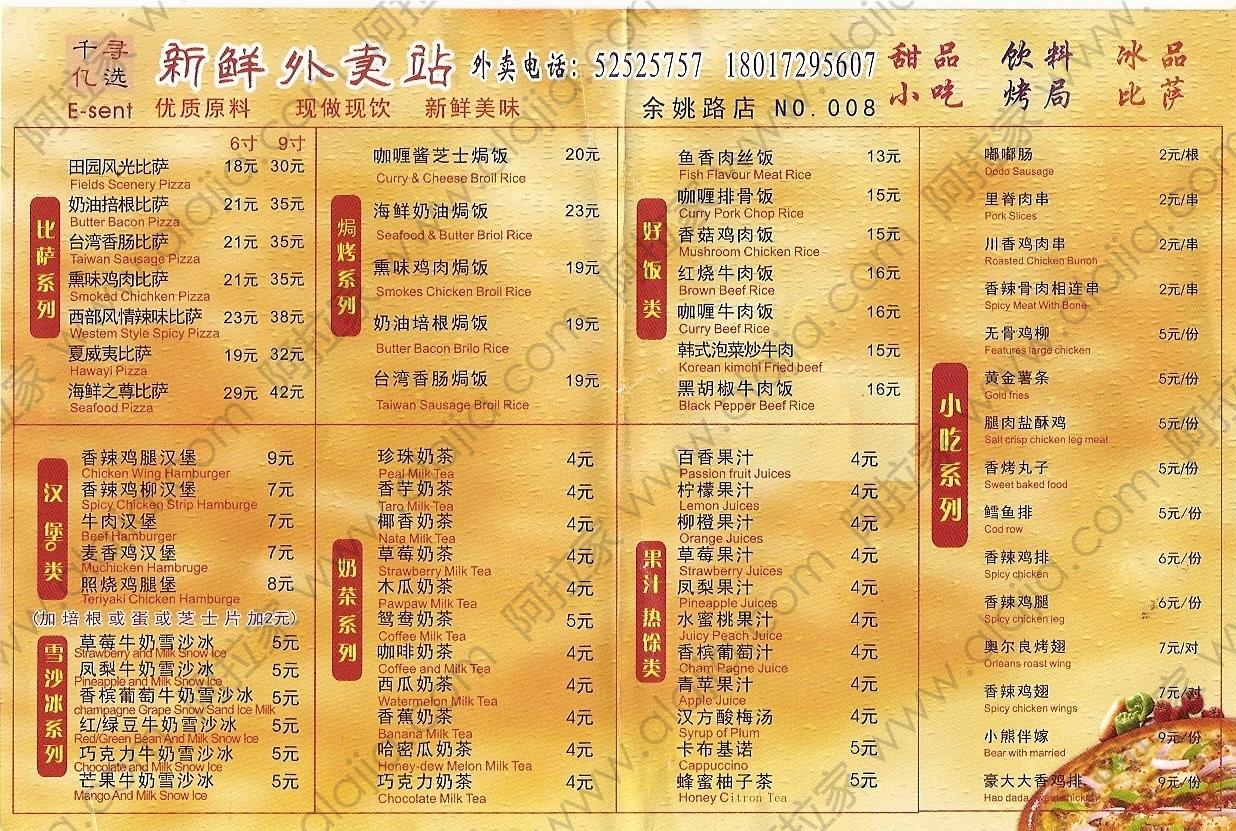 千寻
亿选
E-sent
新鲜外卖站
外卖电话: 52525757 18017295607
优质原料 现做现饮 新鲜美味
余姚路店 NO.008
甜品 饮料 冰品
小吃 烤局 比萨
比萨系列
6寸 9寸
田园风光比萨 18元 30元
Fields Scenery Pizza
奶油掊根比萨 21元 35元
Butter Bacon Pizza
台湾香肠比萨 21元 35元
Taiwan Sausage Pizza
熏味鸡肉比萨 21元 35元
Smoked Chichken Pizza
西部风情辣味比萨 23元 38元
Westem Style Spicy Pizza
夏威夷比萨 19元 32元
Hawayi Pizza
海鲜之尊比萨 29元 42元
Seafood Pizza
焗烤系列
咖喱酱芝士焗饭 20元
Curry & Cheese Broil Rice
海鲜奶油焗饭 23元
Seafood & Butter Briol Rice
熏味鸡肉焗饭 19元
Smokes Chicken Broil Rice
奶油培根焗饭 19元
Butter Bacon Brilo Rice
台湾香肠焗饭 19元
Taiwan Sausage Broil Rice
好饭类
鱼香肉丝饭 13元
Fish Flavour Meat Rice
咖喱排骨饭 15元
Curry Pork Chop Rice
香菇鸡肉饭 15元
Mushroom Chicken Rice
红烧牛肉饭 16元
Brown Beef Rice
咖喱牛肉饭 16元
Curry Beef Rice
韩式泡菜炒牛肉 15元
Korean kimchi Fried beef
黑胡椒牛肉饭 16元
Black Pepper Beef Rice
小吃系列
嘟嘟肠 2元/根
Dodo Sausage
里脊肉串 2元/串
Pork Slices
川香鸡肉串 2元/串
Roasted Chicken Bunoh
香辣骨肉相连串 2元/串
Spicy Meat With Bone
无骨鸡柳 5元/份
Features large chicken
黄金薯条 5元/份
Gold fries
腿肉盐酥鸡 5元/份
Salt crisp chicken leg meat
香烤丸子 5元/份
Sweet baked food
鳕鱼排 5元/份
Cod row
香辣鸡排 6元/份
Spicy chicken
香辣鸡腿 6元/份
Spicy chicken leg
奥尔良烤翅 7元/对
Orleans roast wing
香辣鸡翅 7元/对
Spicy chicken wings
小熊伴嫁 9元/份
Bear with married
豪大大香鸡排 9元/份
Hao dada
汉堡类
香辣鸡腿汉堡 9元
Chicken Wing Hamburger
香辣鸡柳汉堡 7元
Spicy Chicken Strip Hamburge
牛肉汉堡 7元
Beef Hamburger
麦香鸡汉堡 7元
Muchicken Hambruge
照烧鸡腿堡 8元
Teriyaki Chicken Hamburge
(加培根或蛋或芝士片加2元)
雪沙冰系列
草莓牛奶雪沙冰 5元
Strawberry and Milk Snow Ice
凤梨牛奶雪沙冰 5元
Pineapple and Milk Snow Ice
香槟葡萄牛奶雪沙冰 5元
champagne Grape Snow Sand Ice Milk
红/绿豆牛奶雪沙冰 5元
Red/Green Bean And Milk Snow Ice
巧克力牛奶雪沙冰 5元
Chocolate and Milk Snow Ice
芒果牛奶雪沙冰 5元
Mango And Milk Snow Ice
奶茶系列
珍珠奶茶 4元
Peal Milk Tea
香芋奶茶 4元
Taro Milk Tea
椰香奶茶 4元
Nata Milk Tea
草莓奶茶 4元
Strawberry Milk Tea
木瓜奶茶 4元
Pawpaw Milk Tea
鸳鸯奶茶 5元
Coffee Milk Tea
咖啡奶茶 4元
Coffee and Milk Tea
西瓜奶茶 4元
Watermelon Milk Tea
香蕉奶茶 4元
Banana Milk Tea
哈密瓜奶茶 4元
Honey-dew Melon Milk Tea
巧克力奶茶 4元
Chocolate Milk Tea
果汁 热馀类
百香果汁 4元
Passion fruit Juices
柠檬果汁 4元
Lemon Juices
柳橙果汁 4元
Orange Juices
草莓果汁 4元
Strawberry Juices
凤梨果汁 4元
Pineapple Juices
水蜜桃果汁 4元
Juicy Peach Juice
香槟葡萄汁 4元
Cham Pagne Juice
青苹果汁 4元
Apple Juice
汉方酸梅汤 4元
Syrup of Plum
卡布基诺 5元
Cappuccino
蜂蜜柚子茶 5元
Honey Citron Tea
阿拉家 www.alajia.com